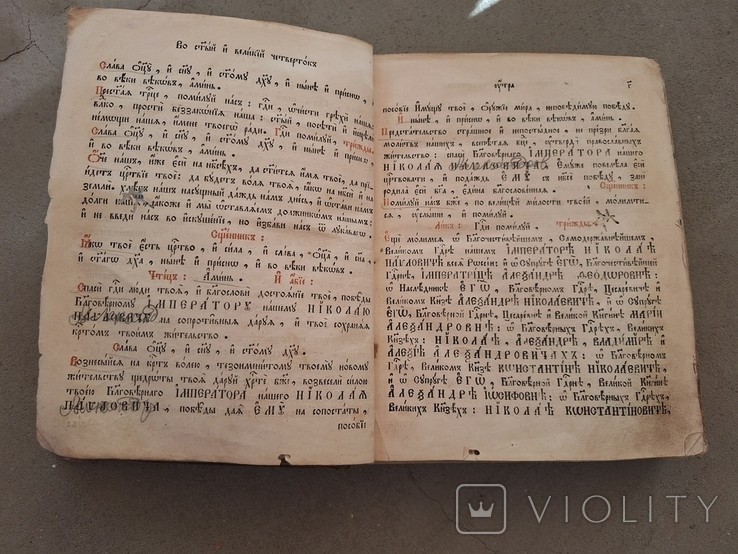 Во ст҃ый и҆ вели́кїй четверто́къ
Сла́ва ѻ҆ц҃ꙋ̀, и҆ сн҃ꙋ, и҆ ст҃о́мꙋ дх҃ꙋ, и҆ ны́нѣ и҆ при́снѡ,
во вѣ́ки вѣкѡ́въ, а҆ми́нь.
Прест҃а́ѧ трⷪ҇це, поми́лꙋй на́съ: гдⷭ҇и, ѡ҆чи́сти грѣхѝ на́шѧ
вⷧ҇ко, простѝ беззакѡ́нїѧ на̑ша: ст҃ы́й, посѣтѝ и҆ и҆сцѣлѝ
не́мѡщи на́шѧ, и҆́мене твоегѡ̀ ра́ди. Гдⷭ҇и поми́лꙋй, три́жды.
Сла́ва ѻ҆ц҃ꙋ̀, и҆ сн҃ꙋ, и҆ ст҃о́мꙋ дх҃ꙋ, и҆ ны́нѣ и҆ при́снѡ,
и҆ во вѣ́ки вѣкѡ́въ, а҆ми́нь.
Ѻ҆́ч҃е на́шъ, и҆́же є҆сѝ на нб҃сѣ́хъ, да ст҃и́тсѧ и҆́мѧ твоѐ, да прі-
и́детъ црⷭ҇твїе твоѐ: да бꙋ́детъ во́лѧ твоѧ̀, ꙗ҆́кѡ на нб҃сѝ и҆ на
землѝ. хлѣ́бъ на́шъ насꙋ́щный да́ждь на́мъ дне́сь, и҆ ѡ҆ста́ви на́мъ
до́лги на́шѧ, ꙗ҆́коже и҆ мы̀ ѡ҆ставлѧ́емъ должникѡ́мъ на́шымъ:
и҆ не введѝ на́съ во и҆скꙋше́нїе, но и҆зба́ви на́съ ѿ лꙋка́вагѡ.
Сщ҃е́нникъ:
Ꙗ҆́кѡ твоѐ є҆́сть црⷭ҇тво, и҆ си́ла, и҆ сла́ва, ѻ҆ц҃а̀, и҆ сн҃а,
и҆ ст҃а́гѡ дх҃а, и҆ ны́нѣ и҆ при́снѡ, и҆ во вѣ́ки вѣкѡ́въ.
Чте́цъ: А҆ми́нь. И҆ а҆́бїе:
Спасѝ гдⷭ҇и лю́ди твоѧ̑, и҆ благословѝ достоѧ́нїе твоѐ, побѣ̑ды
Благовѣ́рномꙋ І҆МПЕРА́ТОРꙊ на́шемꙋ НІКОЛА́Ю
ПА́ѴЛОВИЧꙊ на сопроти̑вныѧ да́рꙋѧ, и҆ твоѐ сохранѧ́ѧ
крⷭ҇то́мъ твои́мъ жи́тельство.
Сла́ва ѻ҆ц҃ꙋ̀, и҆ сн҃ꙋ, и҆ ст҃о́мꙋ дх҃ꙋ.
Вознесы́йсѧ на крⷭ҇тъ во́лею, тезоимени́томꙋ твоемꙋ̀ но́вомꙋ
жи́тельствꙋ щедрѡ́ты твоѧ̑ да́рꙋй хрⷭ҇тѐ бж҃е, возвеселѝ си́лою
твое́ю Благовѣ́рнаго І҆МПЕРА́ТОРА на́шего НІКОЛА́Ѧ
ПА́ѴЛОВИЧА, побѣ̑ды даѧ̀ Є҆МꙊ̀ на сопоста́ты,
посо́бїе
ᲂу҆́тра
г҃
посо́бїе и҆мꙋ́щꙋ твоѐ, ѻ҆рꙋ́жїе ми́ра, непобѣди́мꙋю побѣ́дꙋ.
И҆ ны́нѣ, и҆ при́снѡ, и҆ во вѣ́ки вѣкѡ́въ, а҆ми́нь.
Предста́тельство стра́шное и҆ непосты́дное, не пре́зри бл҃га́ѧ
моли́твъ на́шихъ, всепѣ́таѧ бцⷣе, ᲂу҆твердѝ правосла́вныхъ
жи́тельство: спасѝ Благовѣ́рнаго І҆МПЕРА́ТОРА на́шего
НІКОЛА́Ѧ ПА́ѴЛОВИЧА, Є҆МꙊ́же повелѣ́ла є҆сѝ
ца́рствовати, и҆ пода́ждь Є҆МꙊ̀ съ нб҃сѐ побѣ́дꙋ, занѐ
родила̀ є҆сѝ бг҃а, є҆ди́на бл҃гослове́ннаѧ. Сщ҃е́нникъ:
Поми́лꙋй на́съ бж҃е по вели́цѣй ми́лости твое́й, мо́лимтисѧ,
ᲂу҆слы́ши и҆ поми́лꙋй.
Ли́къ: Гдⷭ҇и поми́лꙋй, три́жды.
Е҆щѐ мо́лимсѧ ѡ҆ Благочести́вѣйшемъ, Самодержа́внѣйшемъ
Вели́комъ Гдⷭ҇рѣ на́шемъ І҆МПЕРА́ТОРѢ НІКОЛА́Ѣ
ПА́ѴЛОВИЧѢ всеѧ̀ Рѡссі́и: ѡ҆ Сꙋпрꙋ́гѣ Є҆ГѠ̀, Благочести́вѣйшей
Гдⷭ҇рнѣ, І҆МПЕРАТРИ́ЦѢ А҆ЛЕѮА́НДРѢ ѲЕО́ДОРОВНѢ:
ѡ҆ Наслѣ́дникѣ Є҆ГѠ̀, Благовѣ́рномъ Гдⷭ҇рѣ, Цеса́ревичѣ и҆
Вели́комъ Кнѧ́зѣ А҆ЛЕѮА́НДРѢ НІКОЛА́ЕВИЧѢ, и҆ ѡ҆ Сꙋпрꙋ́гѣ
Є҆ГѠ̀, Благовѣ́рной Гдⷭ҇рнѣ, Цеса́ревнѣ и҆ Вели́кой Кнѧги́нѣ МАРІ́И
А҆ЛЕѮА́НДРОВНѢ: ѡ҆ Благовѣ́рныхъ Гдⷭ҇рѣхъ, Вели́кихъ
Кнѧзе́хъ: НІКОЛА́Ѣ, А҆ЛЕѮА́НДРѢ, ВЛАДИ́МІРѢ и҆
А҆ЛЕѮІ́Ѣ А҆ЛЕѮА́НДРОВИЧАХЪ: ѡ҆ Благовѣ́рномъ
Гдⷭ҇рѣ, Вели́комъ Кнѧ́зѣ КѠНСТАНТІ́НѢ НІКОЛА́ЕВИЧѢ,
и҆ ѡ҆ Сꙋпрꙋ́гѣ Є҆ГѠ̀, Благовѣ́рной Гдⷭ҇рнѣ, Вели́кой Кнѧги́нѣ
А҆ЛЕѮА́НДРѢ І҆Ѡ́СИФОВНѢ: ѡ҆ Благовѣ́рныхъ Гдⷭ҇рѣхъ,
Вели́кихъ Кнѧзе́хъ: НІКОЛА́Ѣ КѠНСТАНТІ́НОВИЧѢ,
VIOLITY